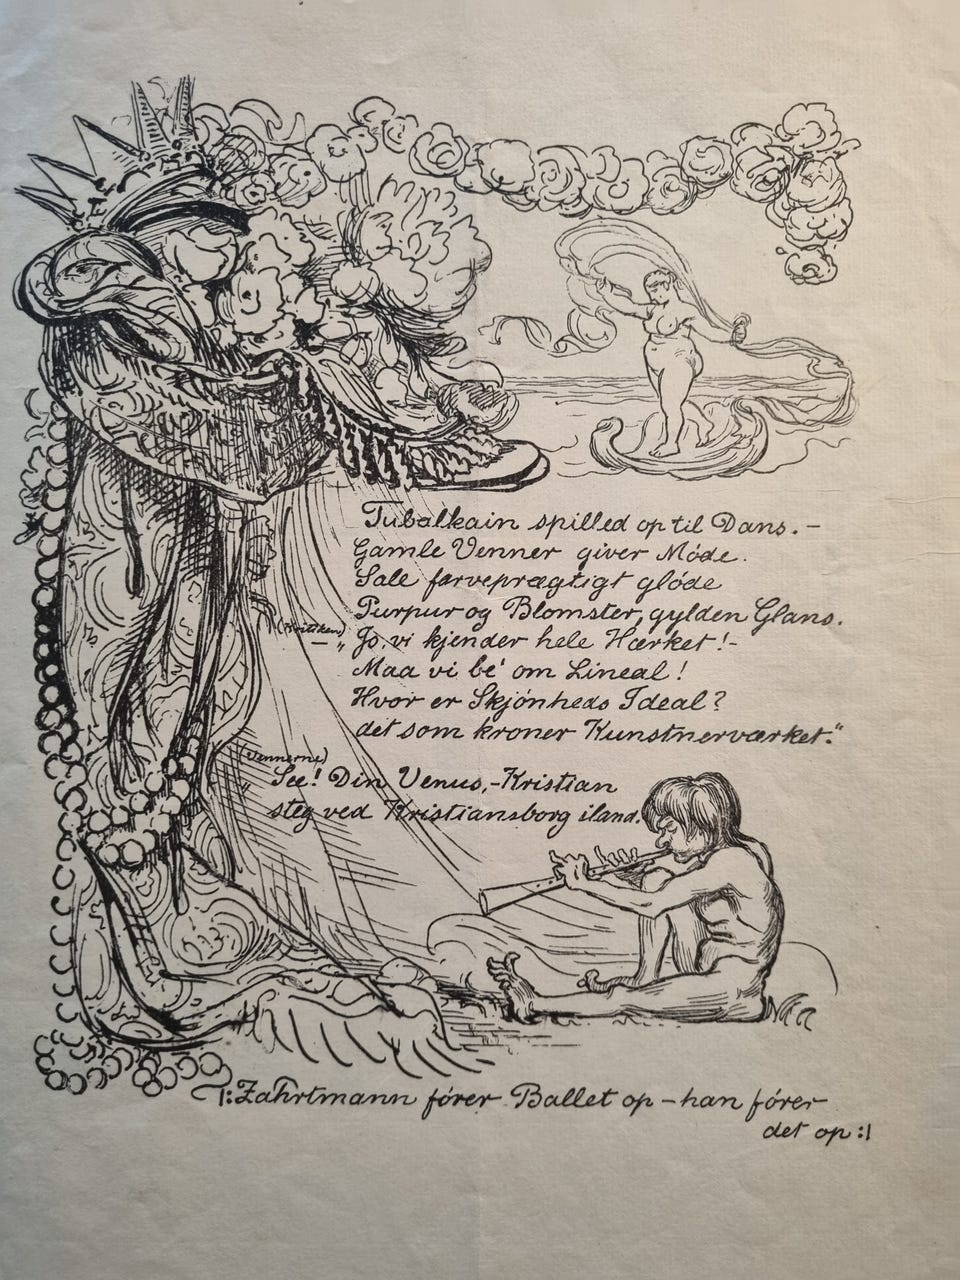 Tubalkain spilled op til Dans. –
Gamle Venner giver Møde.
Sale farveprægtigt gløde
Purpur og Blomster, gylden Glans.
(Kritiken) – „Jo, vi kjender hele Værket! –
Maa vi be' om Lineal!
Hvor er Skjønheds Ideal?
det som kroner Kunstnerværket."
(Vennerne)
„See! Din Venus, – Kristian
steg ved Kristiansborg iland.
|: Zahrtmann fører Ballet op – han fører
det op :|